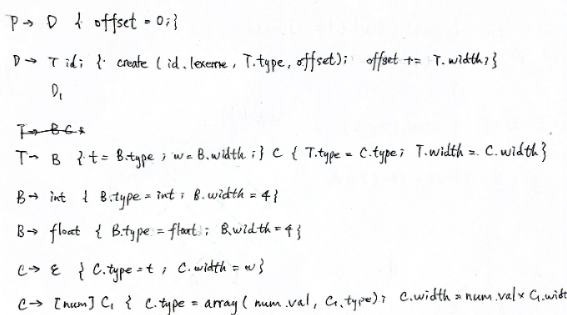 P → D { offset = 0;}
D → T id; { create ( id.lexeme, T.type, offset); offset += T.width;}
D₁
T → B C
T → B { t = B.type ; w = B.width ;} C { T.type = C.type; T.width = C.width}
B → int { B.type = int ; B.width = 4}
B → float { B.type = float ; B.width = 4}
C → ε { C.type = t ; C.width = w}
C → [num] C₁ { C.type = array( num.val, C₁.type); C.width = num.val × C₁.widt